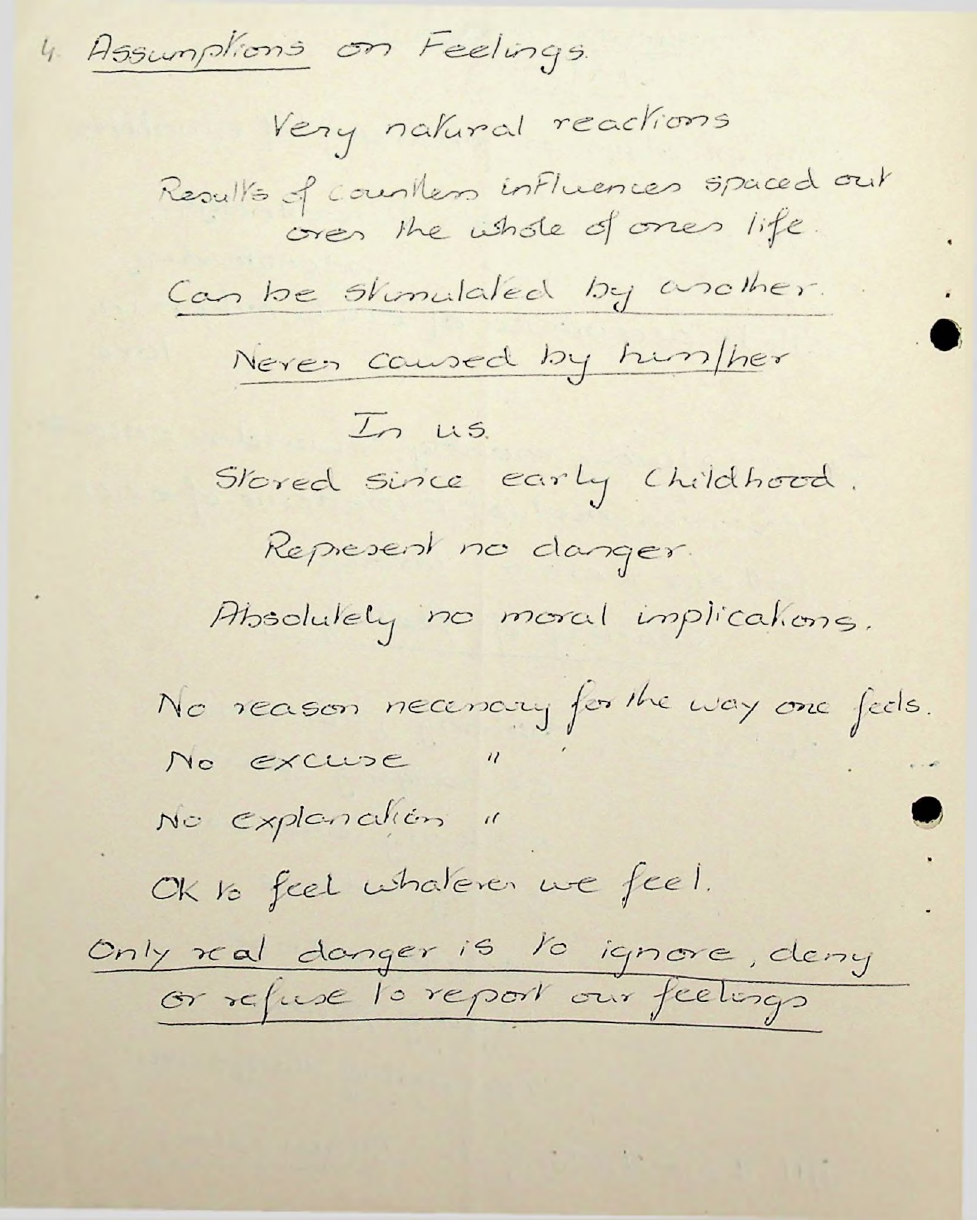 4. Assumptions on Feelings.
Very natural reactions
Results of countless influences spaced out
over the whole of ones life.
Can be stimulated by another.
Never caused by him/her
In us.
Stored since early Childhood.
Represent no danger.
Absolutely no moral implications.
No reason necessary for the way one feels.
No excuse "
No explanation "
OK to feel whatever we feel.
Only real danger is to ignore, deny
or refuse to report our feelings